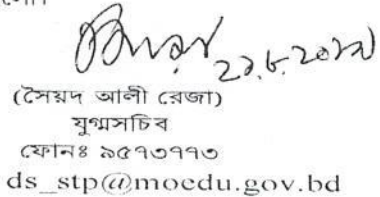 ২১.৮.২০১৭
(সৈয়দ আলী রেজা)
যুগ্মসচিব
ফোনঃ ৯৫৭৩৭৭৩
ds_stp@moedu.gov.bd